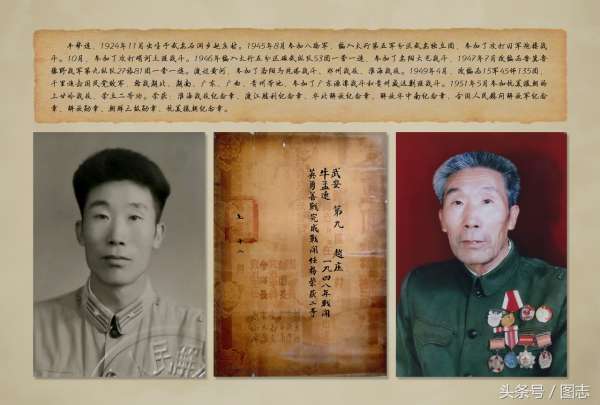 牛孟连，1924年11月出生于武安石洞乡赵庄村。1945年8月参加八路军，编入太行第五军分区武安独立团，参加了攻打日军炮楼战
斗。10月，参加了攻打顺河上堡战斗。1946年编入太行五分区磁武纵队53团一营一连，参加了战斗。1947年7月改编为晋冀鲁
豫野战军第九纵队27旅81团一营一连。渡过黄河，参加了洛阳战斗、郑州战役、淮海战役。1949年4月，改编为15军45师135团，
千里追击国民党败军，转战湖北、湖南、广东、广西、贵州等地，参加了广东战斗和贵州剿匪战斗。1951年5月参加抗美援朝的
上甘岭战役，荣立二等功。荣获：淮海战役纪念章、渡江胜利纪念章、华北解放纪念章、解放华中南纪念章、全国人民慰问解放军纪念
章、解放勋章、朝鲜三级勋章、抗美援朝纪念章。
武安 第九 趙庄
牛孟连 在一九四八年戰鬥
英勇善戰完成戰鬥任務榮获二等
民解
头条号 / 图志